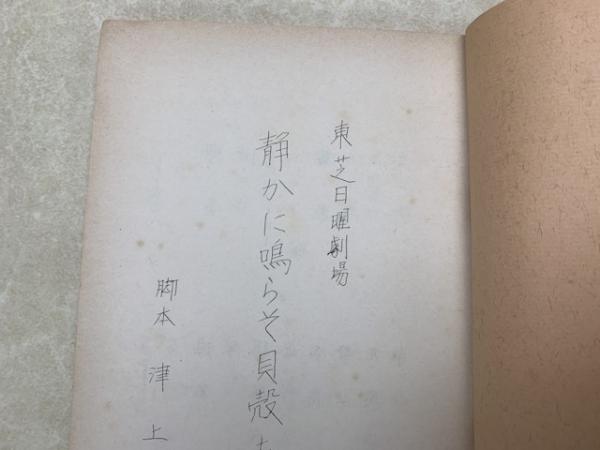 東芝日曜劇場
静かに鳴らそ貝殻
脚本 津上